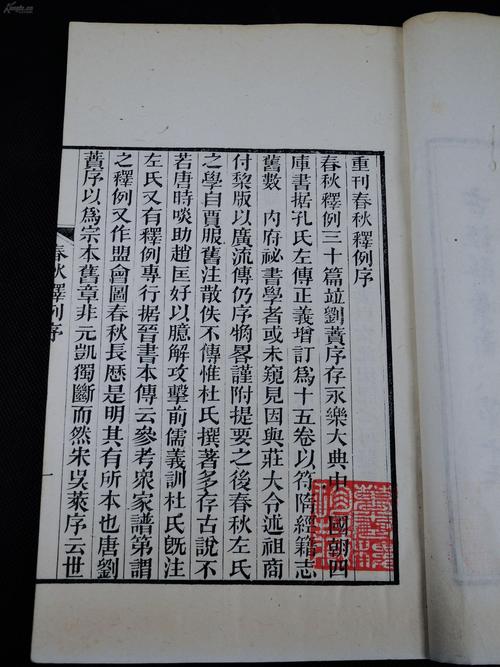 重刊春秋釋例序
春秋釋例三十篇竝劉蕡序存永樂大典中 國朝四
庫書據孔氏左傳正義增訂爲十五卷以符隋經籍志
舊數 內府祕書學者或未窺見因與莊大令述祖商
付黎版以廣流傳仍序梗畧謹附提要之後春秋左氏
之學自賈服舊注散佚不傳惟杜氏撰著多存古說不
若唐時啖助趙匡好以臆解攻擊前儒義訓杜氏旣注
左氏又有釋例專行据晉書本傳云參考衆家譜第謂
之釋例又作盟會圖春秋長厯是明其有所本也唐劉
蕡序以爲宗本舊章非元凱獨斷而然朱吳萊序云世
春秋釋例序